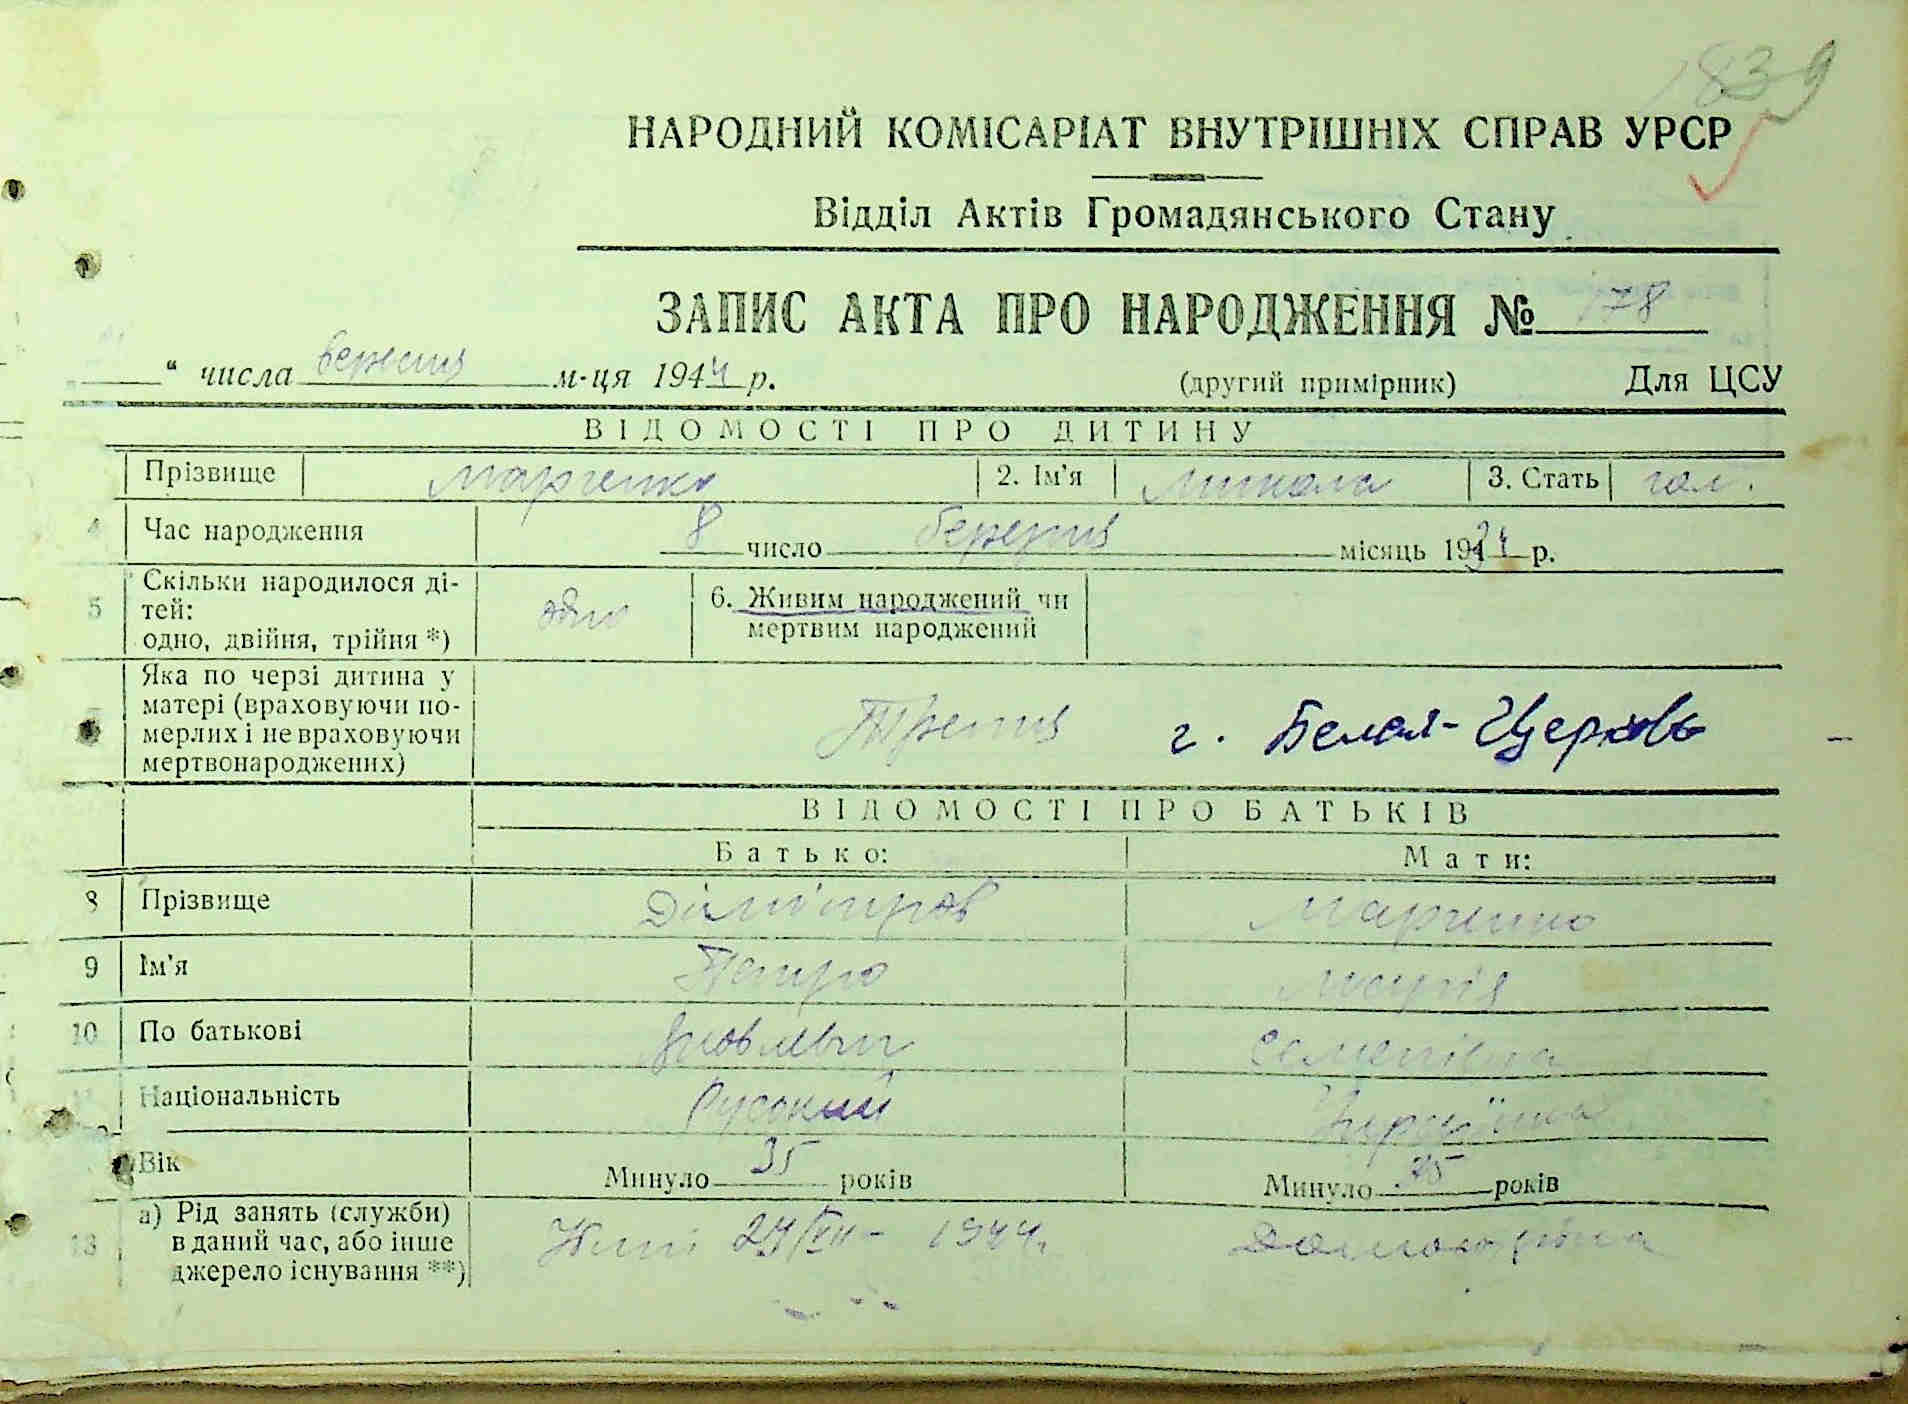 1839
НАРОДНИЙ КОМІСАРІАТ ВНУТРІШНІХ СПРАВ УРСР
Відділ Актів Громадянського Стану
ЗАПИС АКТА ПРО НАРОДЖЕННЯ № 178
“ числа вересня м-ця 1944 р. (другий примірник) Для ЦСУ
ВІДОМОСТІ ПРО ДИТИНУ
Прізвище Марченко 2. Ім'я Микола 3. Стать чол.
4 Час народження 8 число березня місяць 1934 р.
5 Скільки народилося ді-
тей:
одно, двійня, трійня *) одно 6. Живим народжений чи
мертвим народжений
Яка по черзі дитина у
матері (враховуючи по-
мерлих і не враховуючи
мертвонароджених) Третя г. Белая-Церковь
ВІДОМОСТІ ПРО БАТЬКІВ
Батько: Мати:
8 Прізвище Дімітров Марченко
9 Ім'я Петро Марія
10 По батькові Яковлевич Семенівна
Національність Русский Українка
Вік Минуло 35 років Минуло 35 років
13 а) Рід занять (служби)
в даний час, або інше
джерело існування **) 1944 Домохазяйка